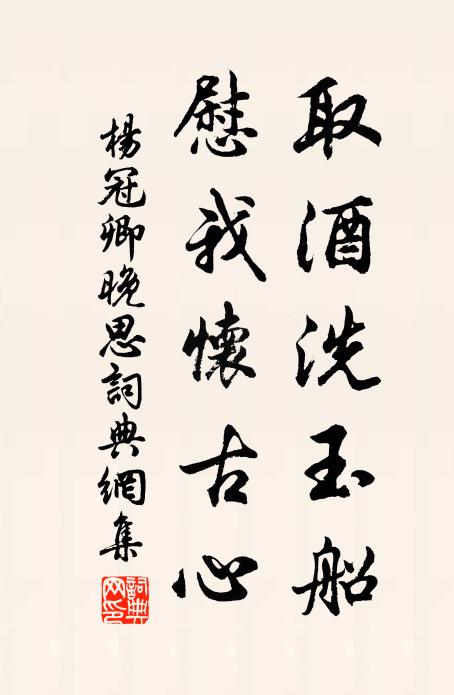 取酒洗玉船
慰我懷古心
楊冠卿晚思詞典網集
詞典網印